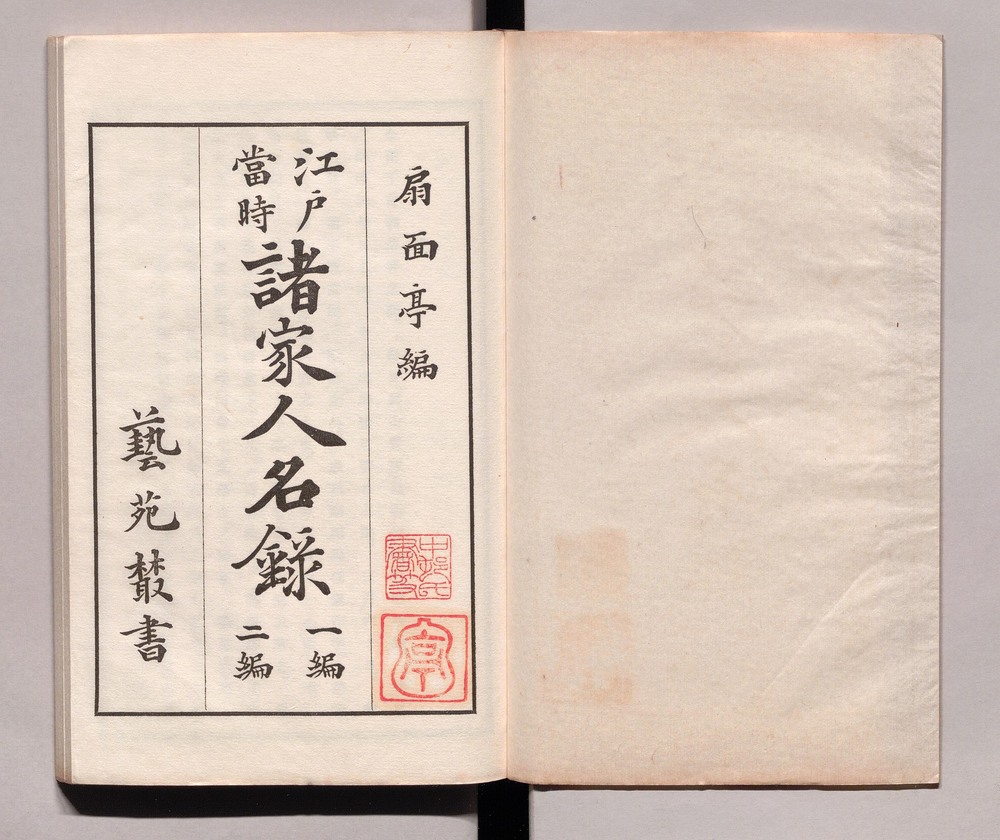 扇面亭編
江戸
當時
諸家人名録
一編
二編
藝苑叢書
亭